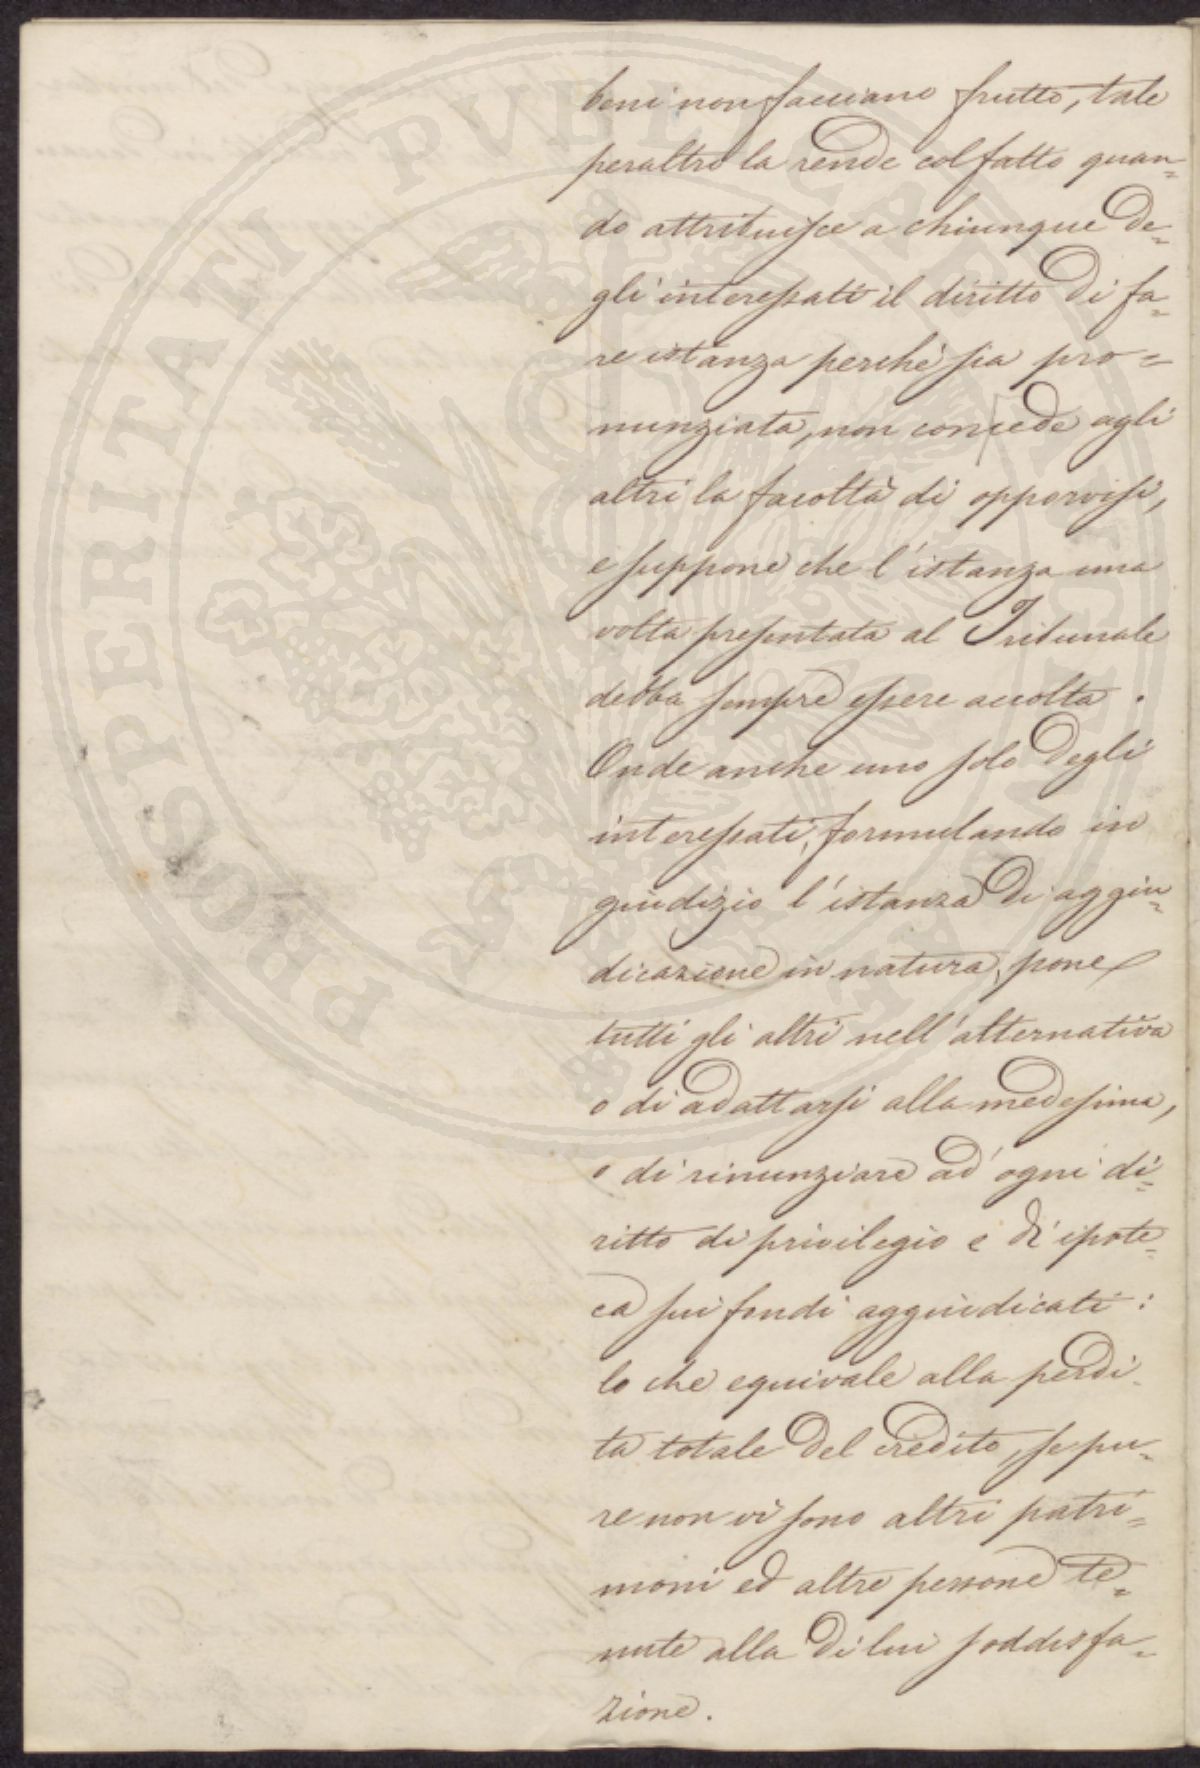 beni non facciano frutto, tale
peraltro la rende col fatto quan=
do attribuisce a chiunque de=
gli interessati il diritto di fa=
re istanza perchè sia pro=
nunziata, non concede agli
altri la facoltà di opporvisi,
e suppone che l'istanza una
volta presentata al Tribunale
debba sempre essere accolta.
Onde anche uno solo degli
interessati, formulando in
giudizio l'istanza di aggiu=
dicazione in natura, pone
tutti gli altri nell'alternativa
o di adattarsi alla medesima,
o di rinunziare ad ogni di=
ritto di privilegio e di ipote=
ca sui fondi aggiudicati:
lo che equivale alla perdi=
ta totale del credito, se pu=
re non vi sono altri patri=
moni ed altre persone te=
nute alla di lui soddisfa=
zione.
PROSPERITATI PVBLICAE AVGENDAE